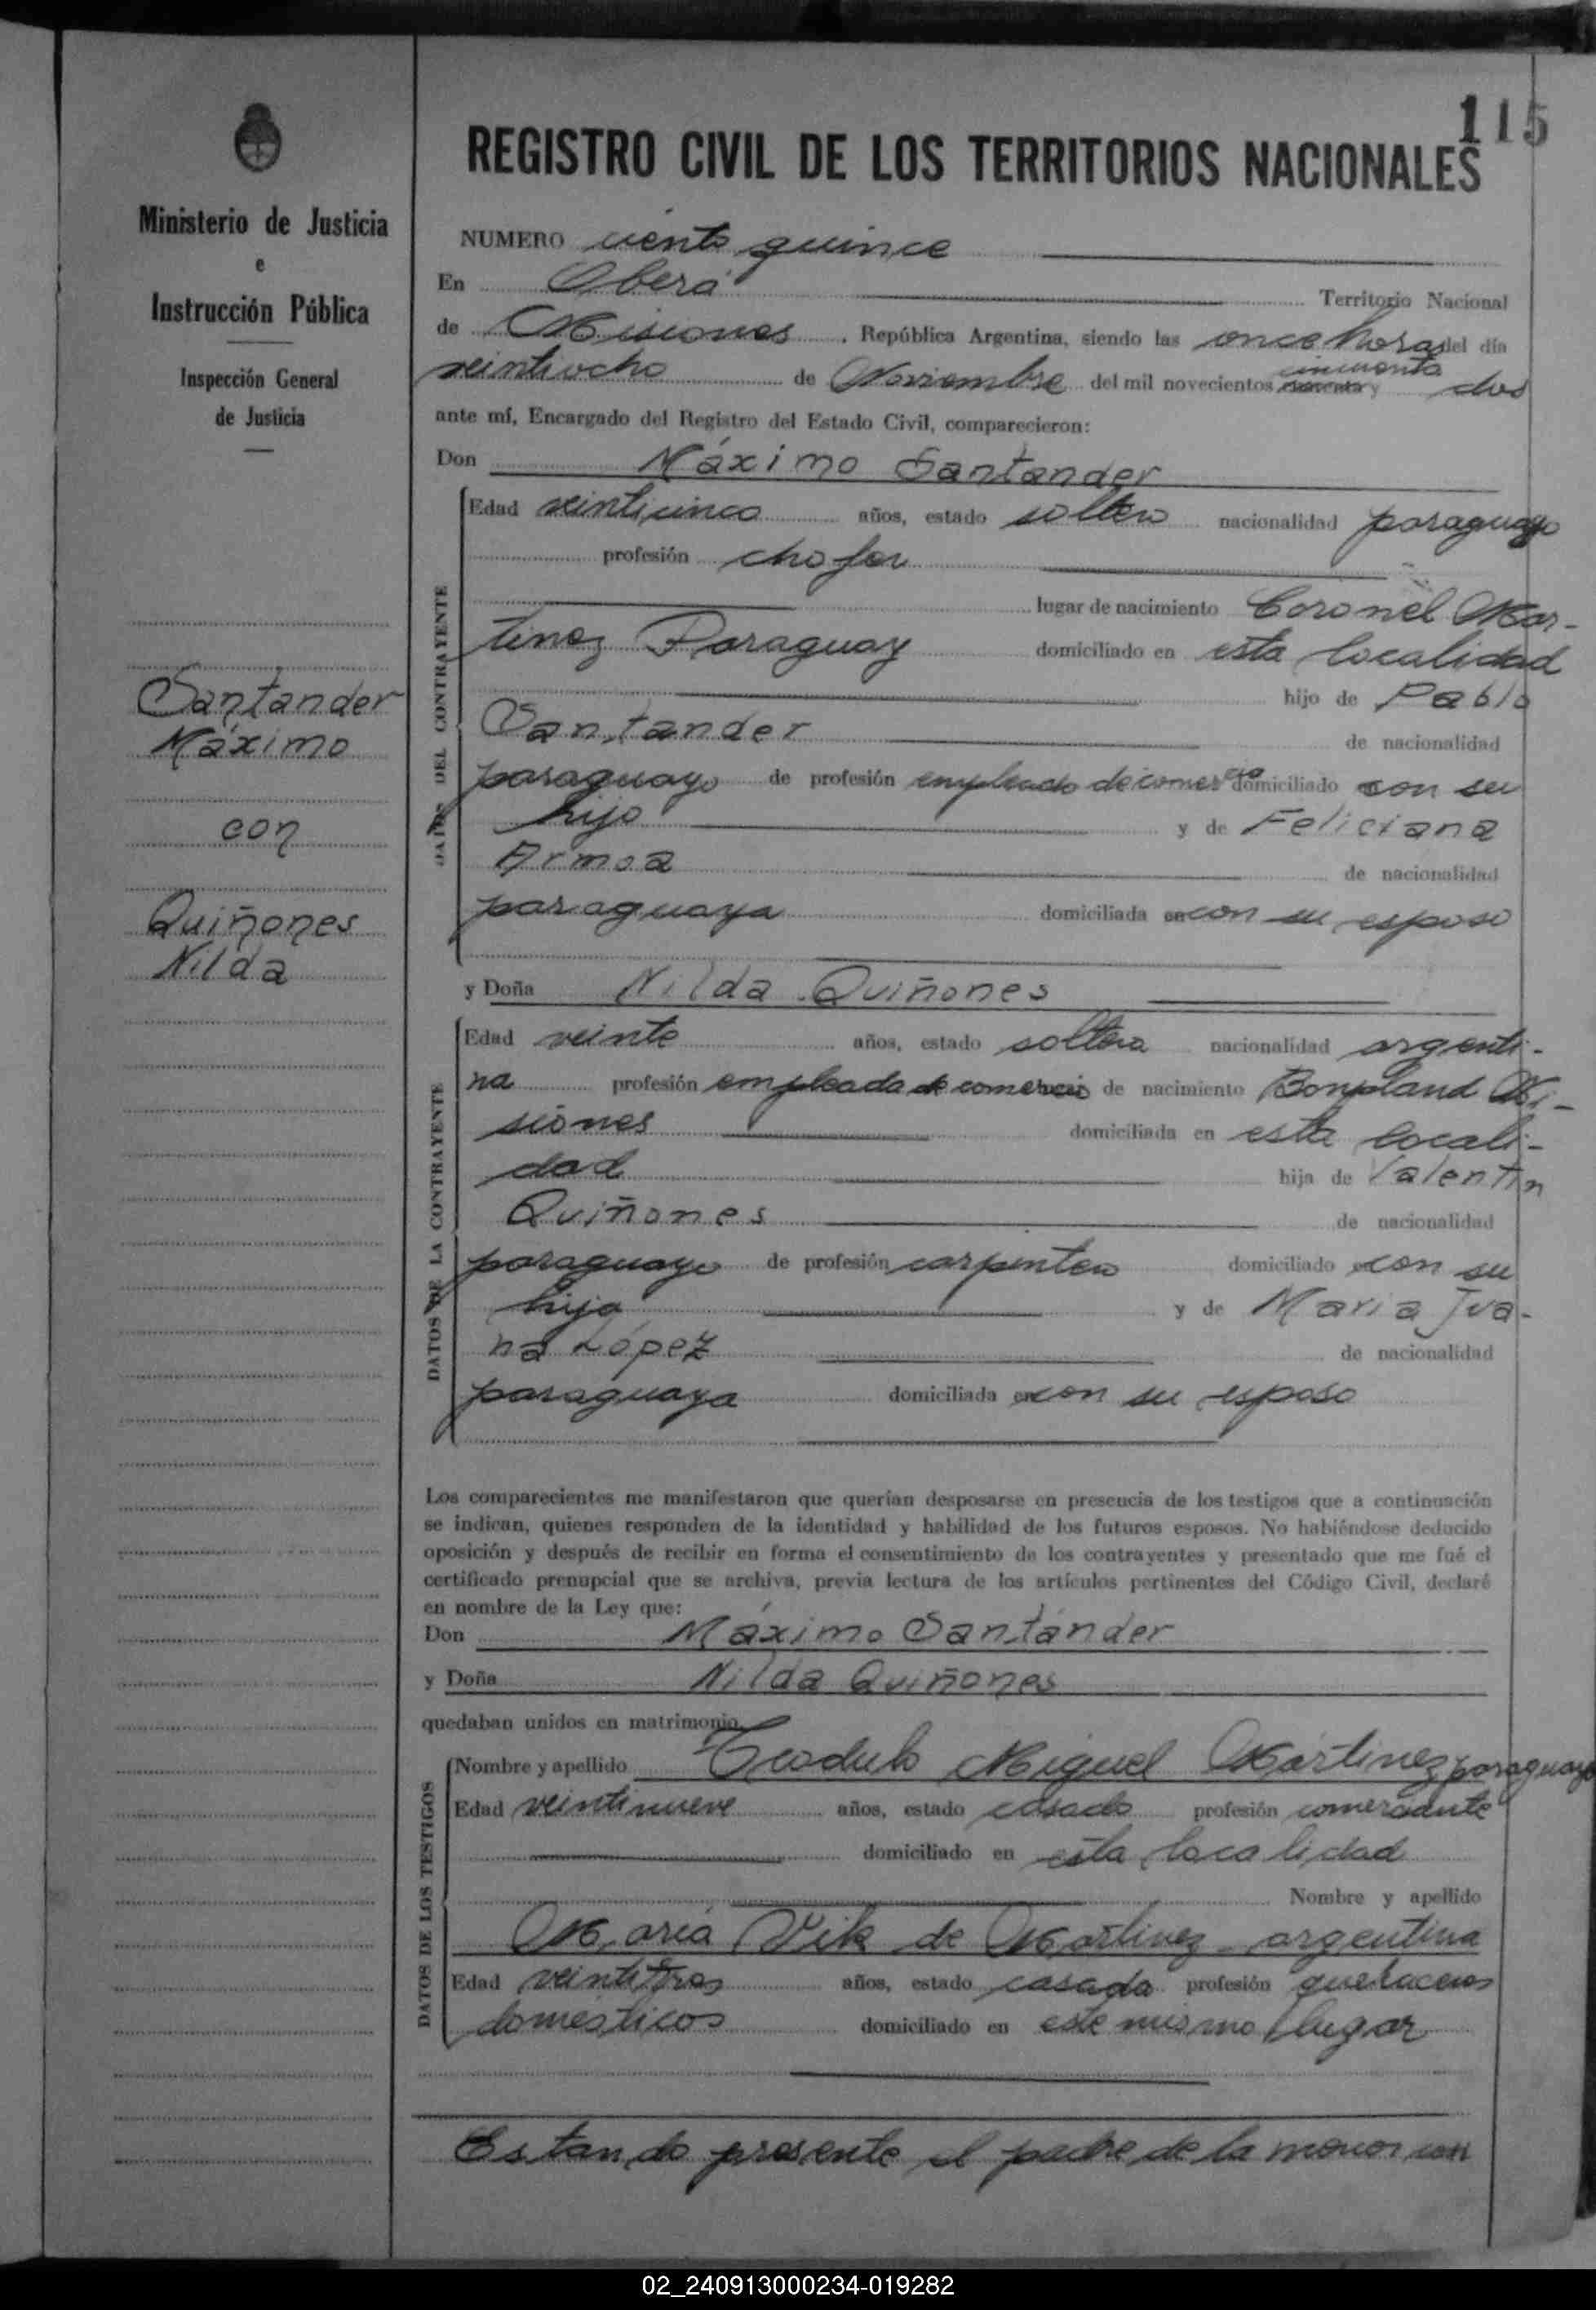 115
REGISTRO CIVIL DE LOS TERRITORIOS NACIONALES
Ministerio de Justicia
e
Instrucción Pública
Inspección General
de Justicia
Santander
Máximo
con
Quiñones
Nilda
NUMERO ciento quince
En Oberá Territorio Nacional
de Misiones, República Argentina, siendo las once horas del día
veintiocho de Noviembre del mil novecientos cincuenta y dos
ante mí, Encargado del Registro del Estado Civil, comparecieron:
Don Máximo Santander
DATOS DEL CONTRAYENTE
Edad veinticinco años, estado soltero nacionalidad paraguayo
profesión chofer
lugar de nacimiento Coronel Mar-
tinez Paraguay domiciliado en esta localidad
hijo de Pablo
Santander de nacionalidad
paraguayo de profesión empleado de comercio domiciliado con su
hijo y de Feliciana
Armoa de nacionalidad
paraguaya domiciliada en con su esposo
y Doña Nilda Quiñones
DATOS DE LA CONTRAYENTE
Edad veinte años, estado soltera nacionalidad argenti-
na profesión empleada de comercio de nacimiento Bonpland Mi-
siones domiciliada en esta locali-
dad hija de Valentín
Quiñones de nacionalidad
paraguayo de profesión carpintero domiciliado con su
hija y de Maria Jua-
na López de nacionalidad
paraguaya domiciliada en con su esposo
Los comparecientes me manifestaron que querían desposarse en presencia de los testigos que a continuación
se indican, quienes responden de la identidad y habilidad de los futuros esposos. No habiéndose deducido
oposición y después de recibir en forma el consentimiento de los contrayentes y presentado que me fué el
certificado prenupcial que se archiva, previa lectura de los artículos pertinentes del Código Civil, declaré
en nombre de la Ley que:
Don Máximo Santander
y Doña Nilda Quiñones
quedaban unidos en matrimonio.
DATOS DE LOS TESTIGOS
Nombre y apellido Teodulo Miguel Martinez paraguayo
Edad veintinueve años, estado casado profesión comerciante
domiciliado en esta localidad
Nombre y apellido
María Vik de Martinez argentina
Edad veintitres años, estado casada profesión quehaceres
domésticos domiciliado en este mismo lugar
Estando presente el padre de la menor con
02_240913000234-019282